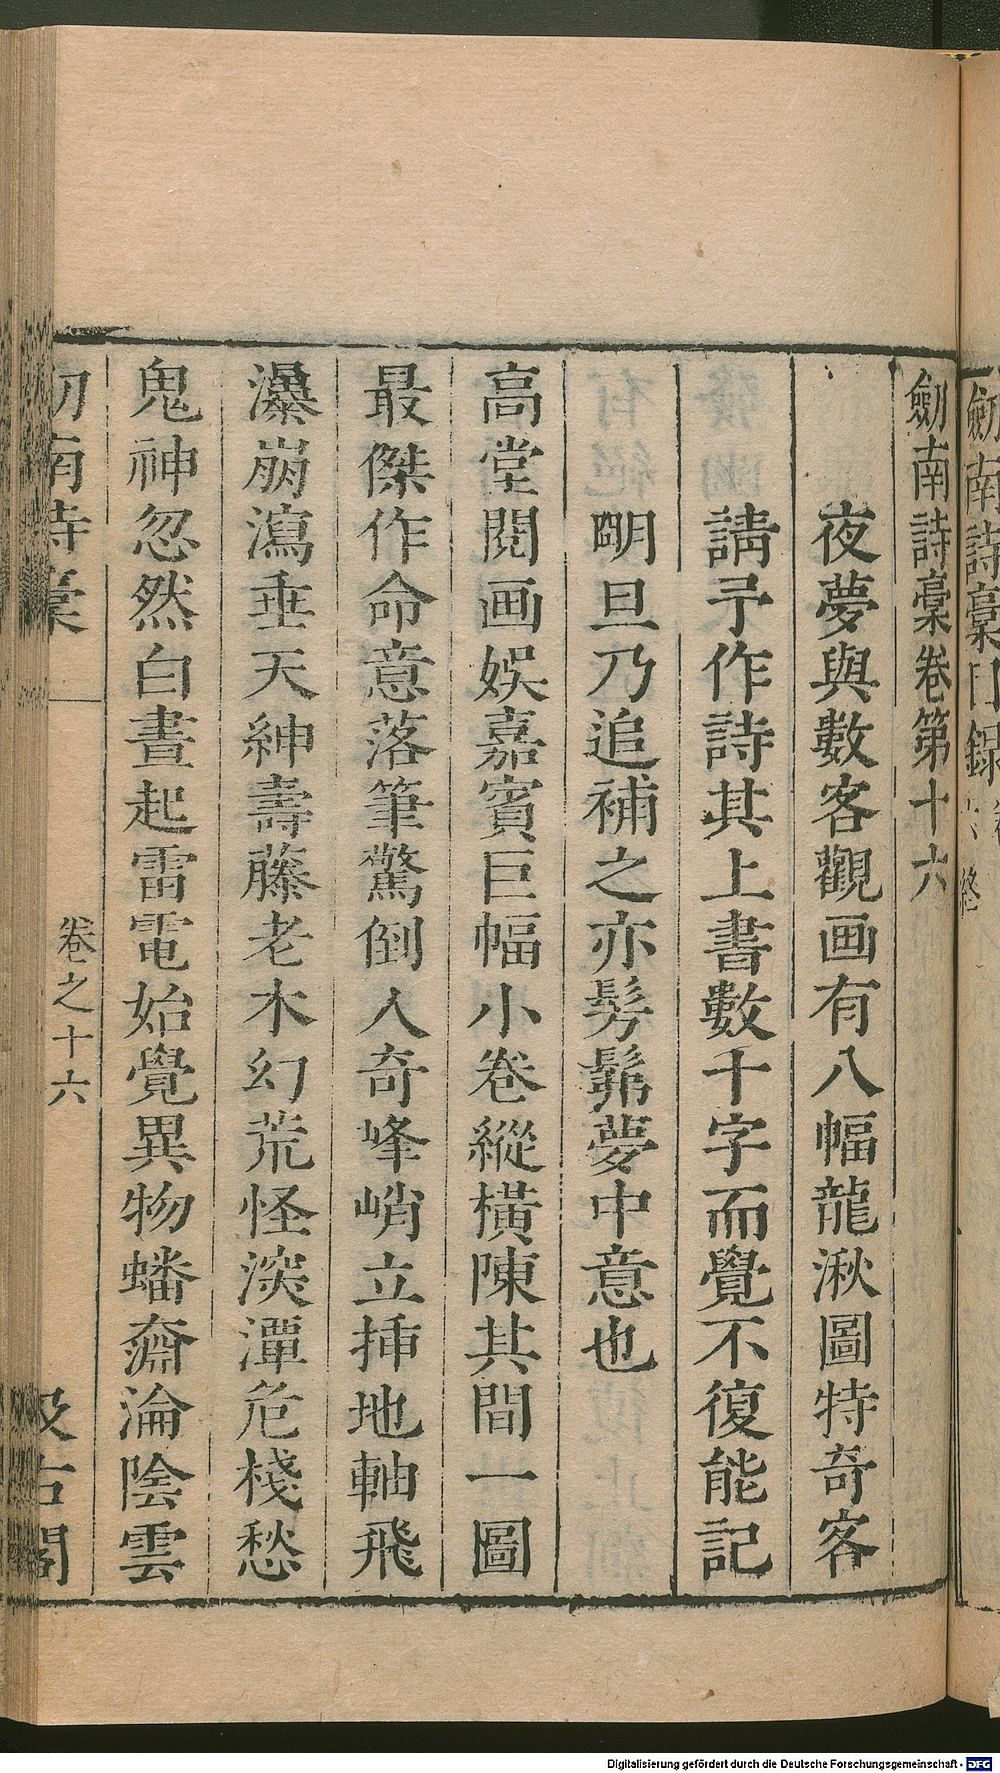 劔南詩稾目録
劔南詩稾卷第十六
夜夢與數客觀画有八幅龍湫圖特竒客
請予作詩其上書數十字而覺不復能記
明旦乃追補之亦髣髴夢中意也
高堂閱画娛嘉賓巨幅小卷縱橫陳其間一圖
最傑作命意落筆驚倒人竒峰峭立揷地軸飛
瀑崩瀉垂天紳壽藤老木幻荒怪深潭危棧愁
鬼神忽然白晝起雷電始覺異物蟠奫淪陰雲
劔南詩稾
卷之十六
汲古閣
Digitalisierung gefördert durch die Deutsche Forschungsgemeinschaft - DFG